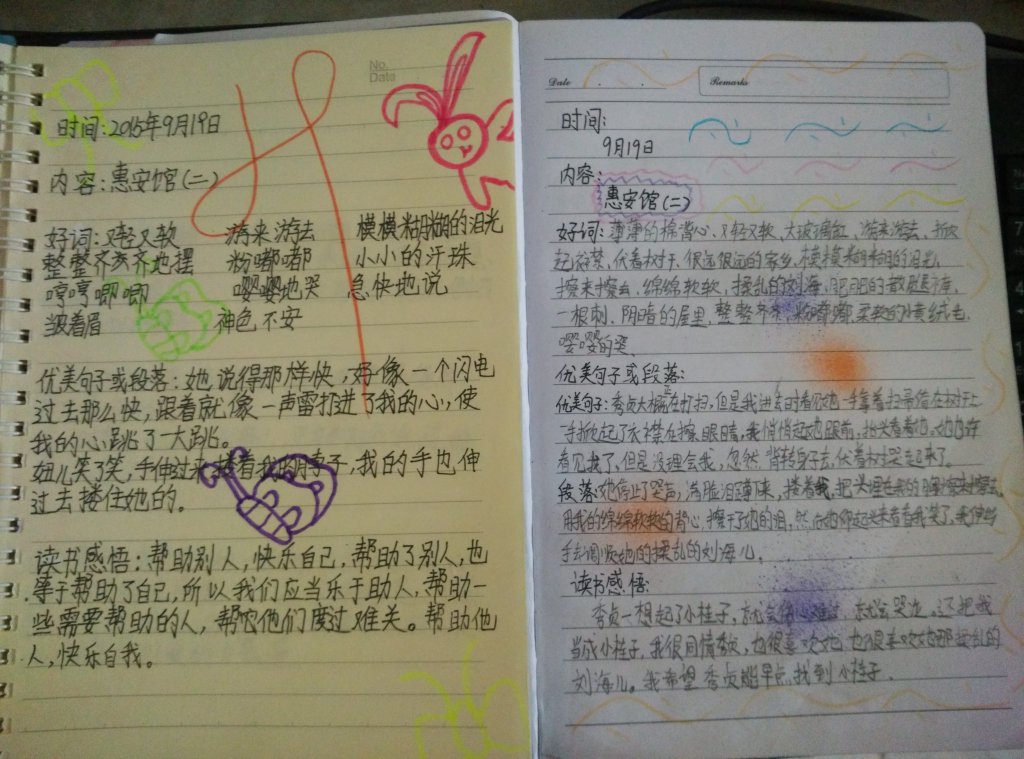 No.
Date
时间:2015年9月19日
内容:惠安馆(二)
好词:又轻又软 游来游去 模模粘糊糊的泪光
整整齐齐地摆 粉嘟嘟 小小的汗珠
哼哼唧唧 嘤嘤地哭 急快地说
皱着眉 神色不安
优美句子或段落:她说得那样快,好像一个闪电
过去那么快,跟着就像一声雷打进了我的心,使
我的心跳了一大跳。
妞儿笑了笑,手伸过来搂着我的脖子,我的手也伸
过去搂住她的。
读书感悟:帮助别人,快乐自己,帮助了别人,也
等于帮助了自己,所以我们应当乐于助人,帮助一
些需要帮助的人,帮他们度过难关。帮助他
人,快乐自我。
Date
Remarks
时间:
9月19日
内容:
惠安馆(二)
好词:薄薄的棉背心、又轻又软、大玻璃缸、游来游去、掀
起衣襟、伏着树干、很远很远的家乡、模模糊糊的泪光、
擦来擦去、绵绵软软、揉乱的刘海、
一根刺、阴暗的屋里、整整齐齐、粉嘟嘟、柔软的黄绒毛、
嘤嘤的哭、
优美句子或段落:
优美句子:秀贞大概在打扫,但是我进去时看见她一手拿着扫帚倚在树干上
一手掀起了衣襟在擦眼睛,我悄悄走到她跟前,抬头看着她,她也许
看见我了,但是没理会我,忽然背转身子去,伏着树哭起来了。
段落:她停止了哭声,满脸泪蹲下来,搂着我,把头埋在我的胸前擦来擦去,
用我的绵绵软软的背心,擦干了她的泪,然后她仰起头来看看我笑了,我伸出
手去调顺她的揉乱的刘海儿。
读书感悟:
秀贞一想起了小桂子,就会伤心难过,就会哭泣,还把我
当成小桂子,我很同情她,也很喜欢她,也很喜欢她那揉乱的
刘海儿。我希望秀贞能早点找到小桂子.